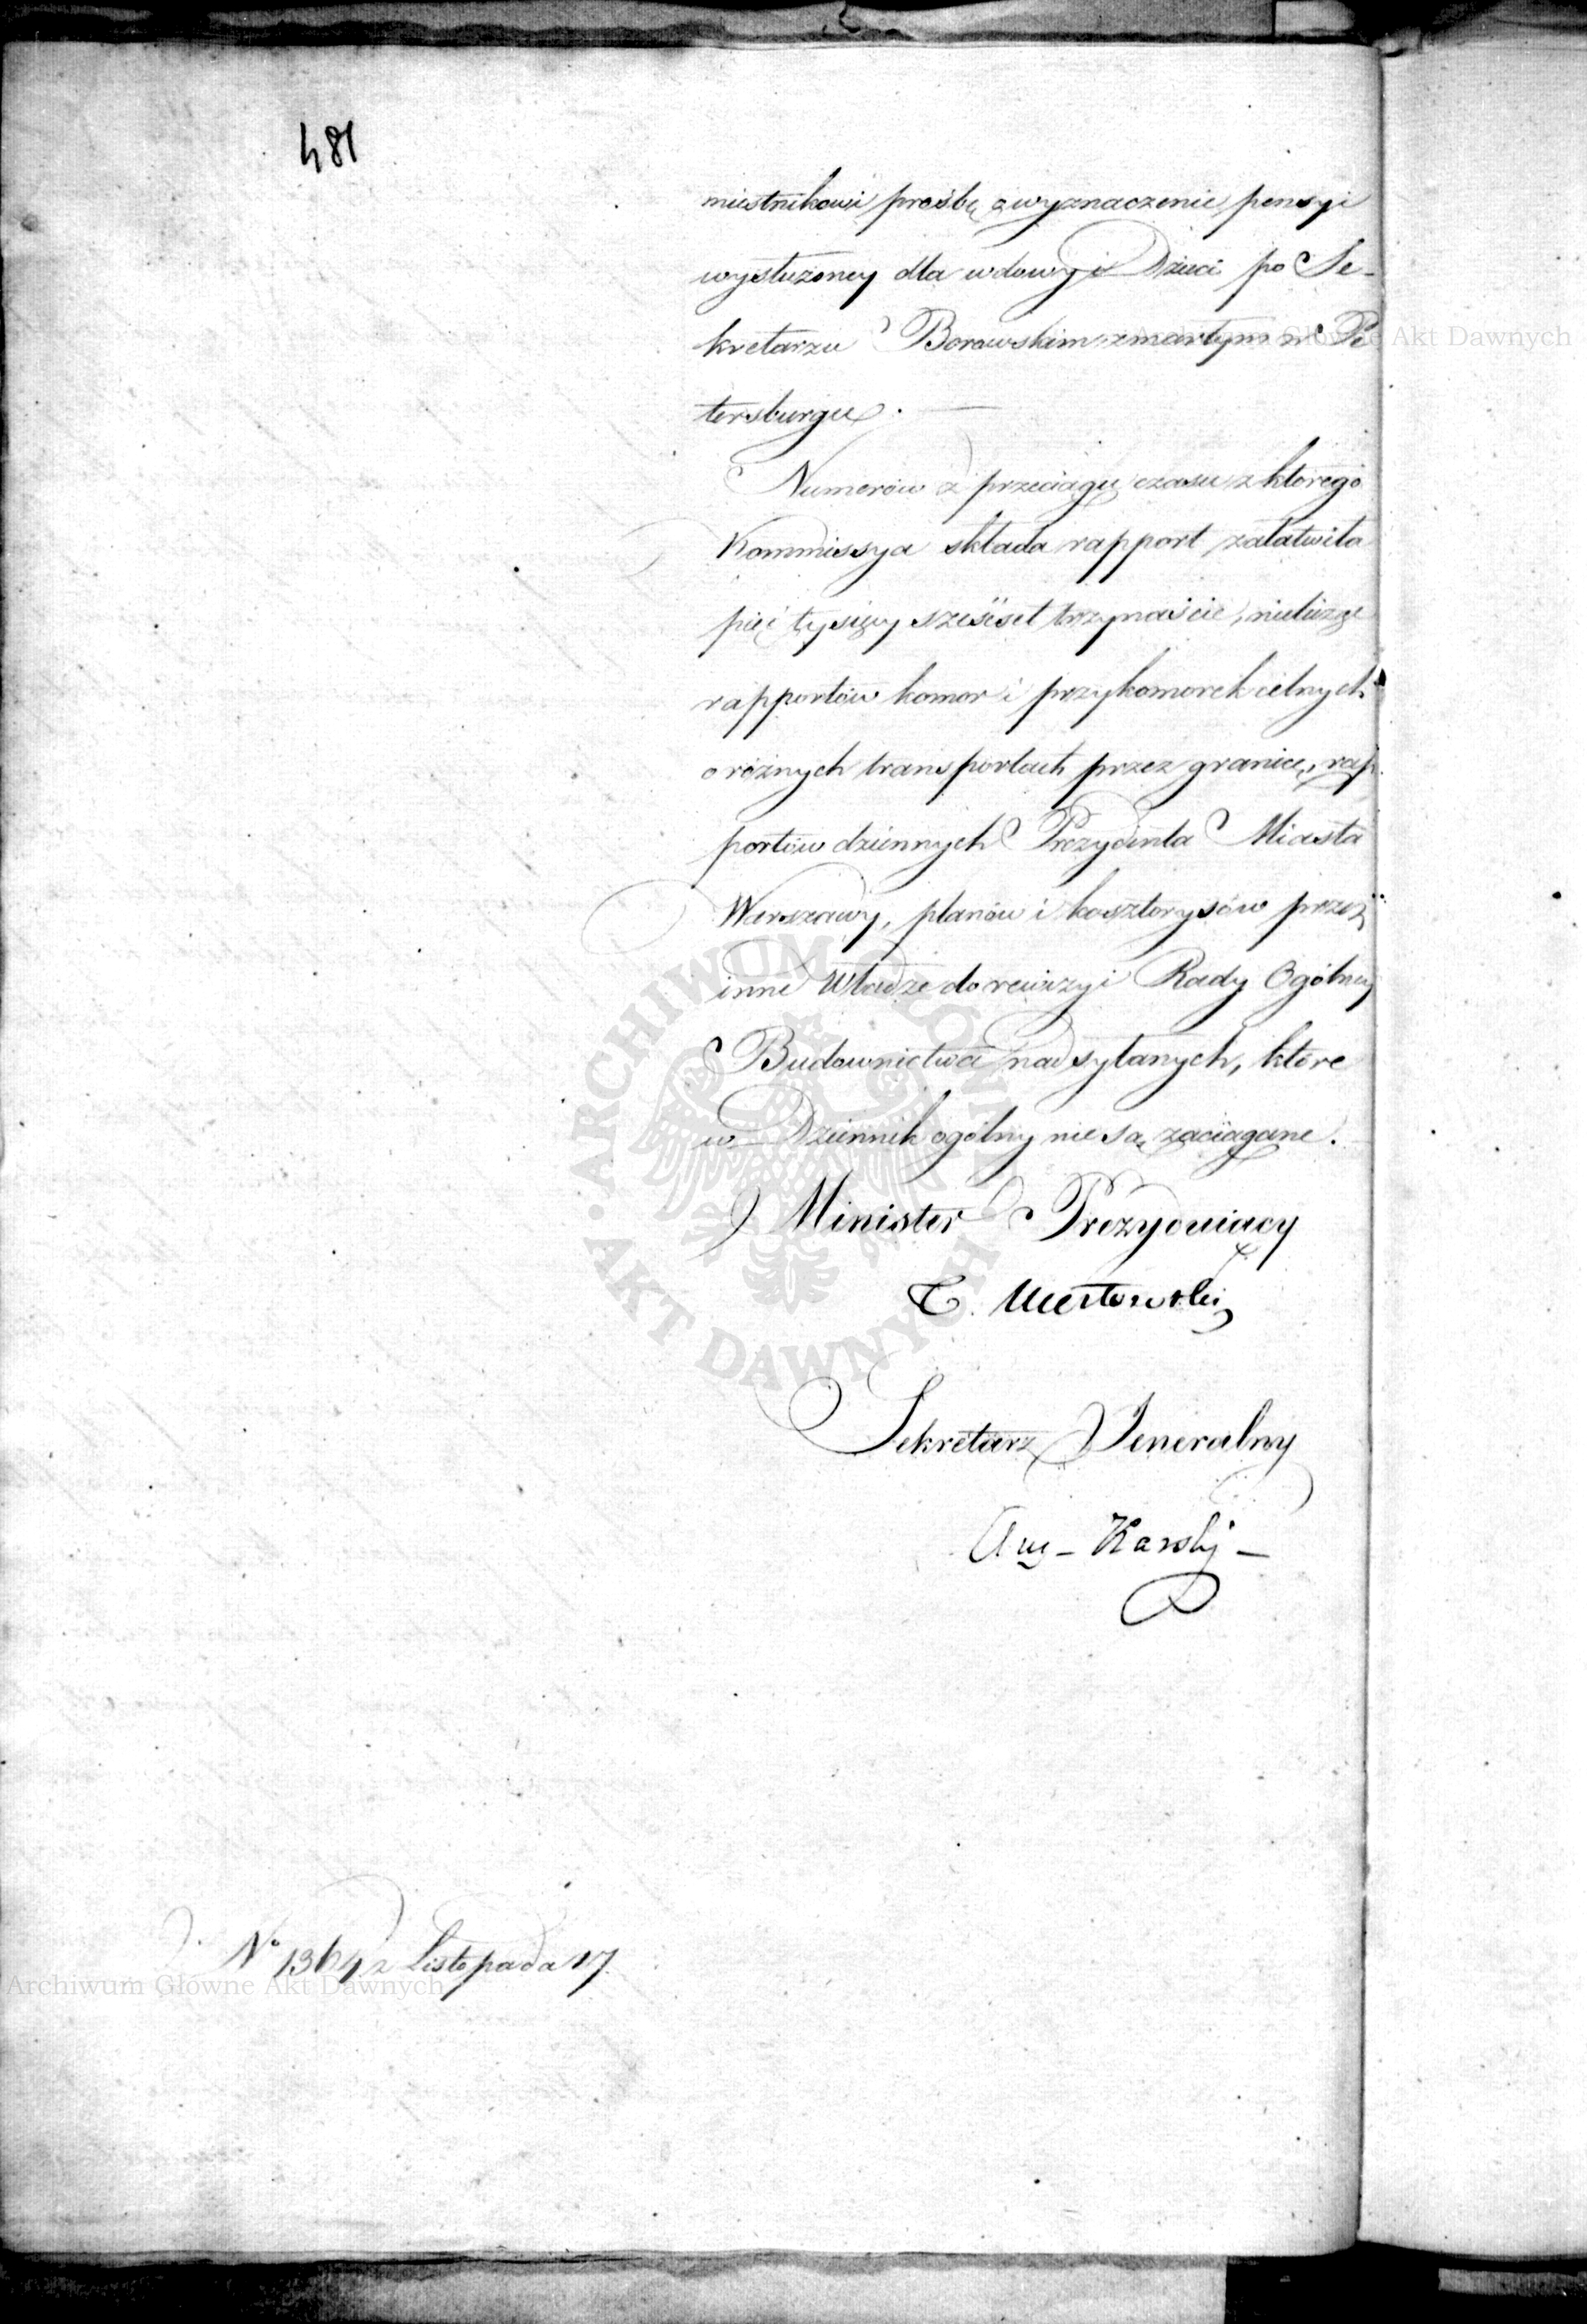 481
miestnikowi prośbę o wyznaczenie pensyi
wysłużoney dla wdowy i Dzieci po Se-
kretarzu Borowskim zmarłym w Pe
tersburgu. —
Numerów z przeciągu czasu z którego
Kommissya składa rapport załatwiła
pięć tysięcy sześćset trzynaście, nielicząc
rapportów komor i przykomorek celnych
o różnych transportach przez granicę, rap
portów dziennych Prezydenta Miasta
Warszawy, planów i kosztorysów przez
inne Władze do rewizyi Rady Ogólney
Budownictwa nadsyłanych, które
w Dziennik ogólny nie są zaciągane.
Minister Prezyduiący
T. Mostowski
Sekretarz Jeneralny
Aug – Karski –
No 1364 z Listopada 17.
Archiwum Główne Akt Dawnych
Archiwum Główne Akt Dawnych
ARCHIWUM GŁÓWNE AKT DAWNYCH